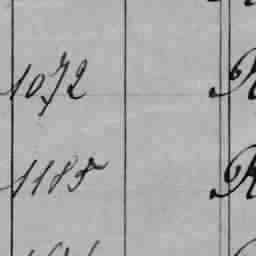 1072 R
1185 R